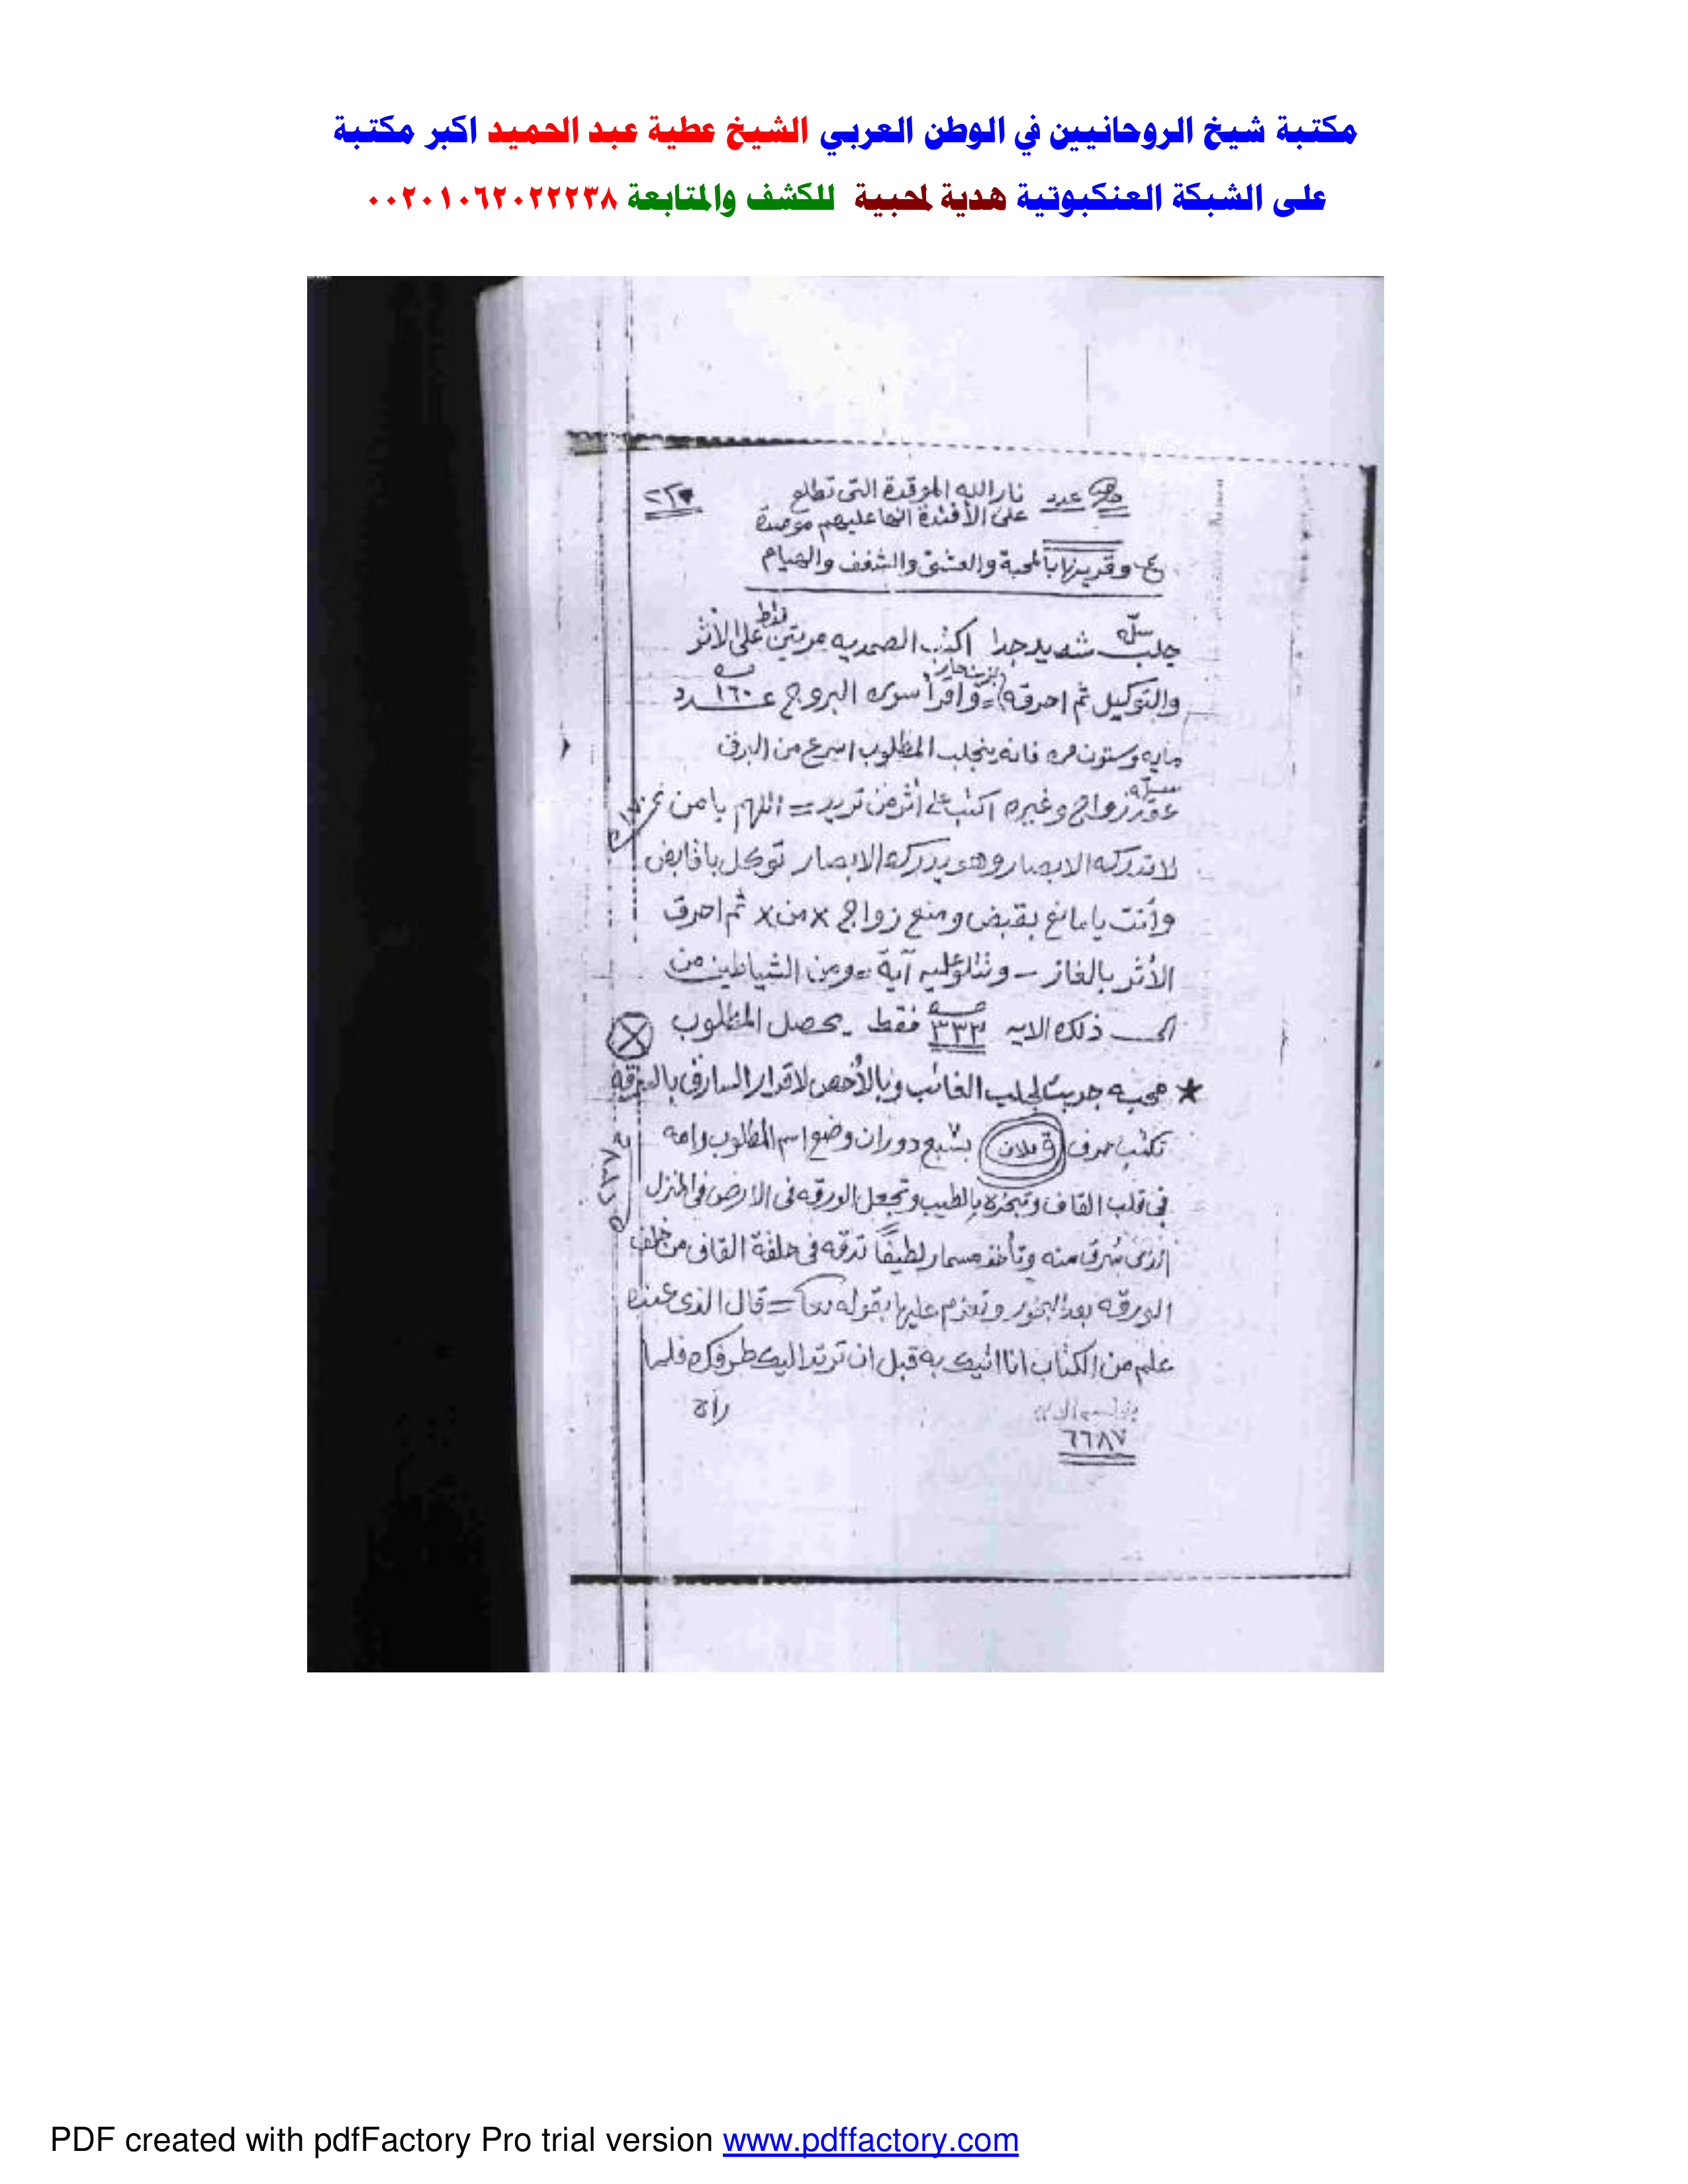 مكتبة شيخ الروحانيين في الوطن العربي الشيخ عطية عبد الحميد اكبر مكتبة
على الشبكة العنكبوتية هدية لمحبية للكشف والمتابعة ٠٠٢٠١٠٦٢٠٢٢٢٣٨
عدد نار الله الموقدة التى تطلع
على الأفئدة انها عليهم موصدة
وقرينها بالمحبة والعشق والشغف والهيام
جلب شديد جدا اكتب الصمديه مرتين فقط على الاثر
والتوكيل ثم احرقه واقرأ سوره البروج عدد ١٦٠
مايه وستون مره فانه ينجلب المطلوب اسرع من البرق
عقد زواج وغيره اكتب على أثر من تريد = اللهم يا من
لا تدركه الابصار وهو يدركه الابصار توكل يا قابض
وأنت يا مانع بقبض ومنع زواج × من × ثم احرق
الأثر بالغاز - وتتلو عليه آية = ومن الشياطين من
الى ذلك الايه ٣٣٣ فقط يحصل المطلوب
★ محبه جربت لجلب الغائب وبالأخص لاقرار السارق بالسرقه
تكتب حرف ق فلان بسبع دوران وضع اسم المطلوب وامه
فى قلب القاف وتبخره بالطيب وتجعل الورقه فى الارض فى المنزل
الذى سُرق منه وتأخذ مسمار لطيفاً تدقه فى حلقة القاف من خلف
الورقه بعد البخور وتعزم عليها بقوله تعا = قال الذى عنده
علم من الكتاب انا اتيك به قبل ان يرتد اليك طرفك فلما
رأه
٦٦٨٧
PDF created with pdfFactory Pro trial version www.pdffactory.com